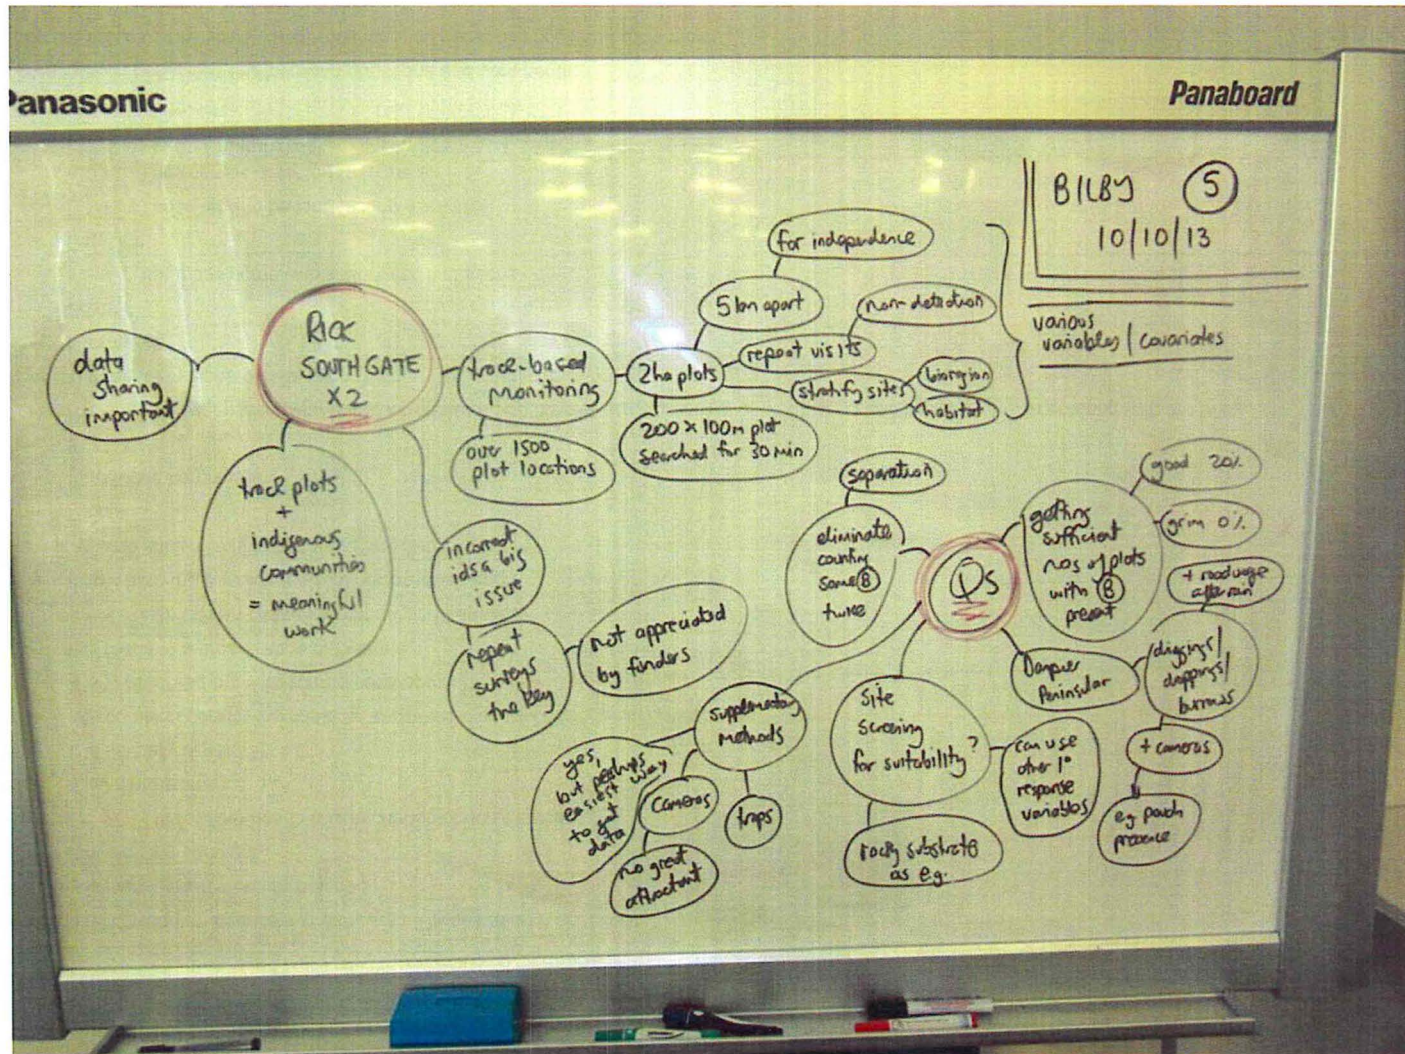 Panasonic
Panaboard
BILBY 5
10/10/13
various
variables / covariates
RICK
SOUTHGATE
X2
data
sharing
important
track plots
+
indigenous
communities
= meaningful
work
track-based
monitoring
over 1500
plot locations
2ha plots
200 x 100m plot
searched for 30 min
5 km apart
for independence
repeat visits
non-detection
stratify sites
bioregion
habitat
incorrect
ids a big
issue
repeat
surveys
the key
not appreciated
by funders
QS
separation
eliminate
counting
same B
twice
getting
sufficient
nos of plots
with B
present
good 20%
grim 0%
Dampier
Peninsular
diggings/
droppings/
burrows
+ road verge
after rain
+ cameras
eg pouch
presence
site
screening
for suitability?
can use
other 1°
response
variables
rocky substrate
as e.g.
supplementary
methods
yes,
but perhaps
easiest way
to get
data
cameras
no great
attractant
traps